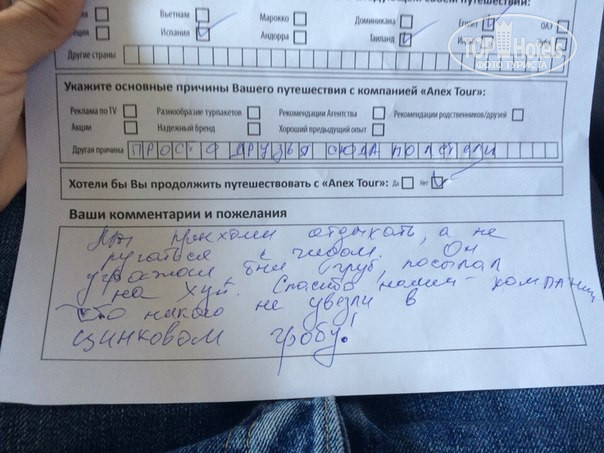 Вьетнам Марокко Доминикана Египет ОАЭ
Испания Андорра Таиланд
Другие страны
TOP Hotels
ФОТО ТУРИСТА
Укажите основные причины Вашего путешествия с компанией «Anex Tour»:
Реклама по TV Разнообразие турпакетов Рекомендации Агентства Рекомендации родственников/друзей
Акции Надежный бренд Хороший предыдущий опыт
Другая причина ПРОСТО ДРУЗЬЯ СЮДА ПОЛЕТЕЛИ
Хотели бы Вы продолжить путешествовать с «Anex Tour»: Да Нет
Ваши комментарии и пожелания
отдыхать, а не
ругаться с гидом. Он
был груб, посылал
на хуй. Спасибо компании
что никого не увезли в
цинковом гробу!